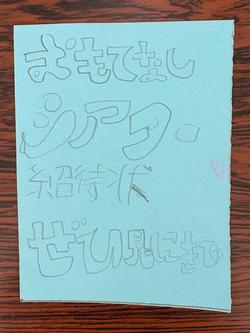 おもてなし
シアター
紹待状
ぜひ見にきて